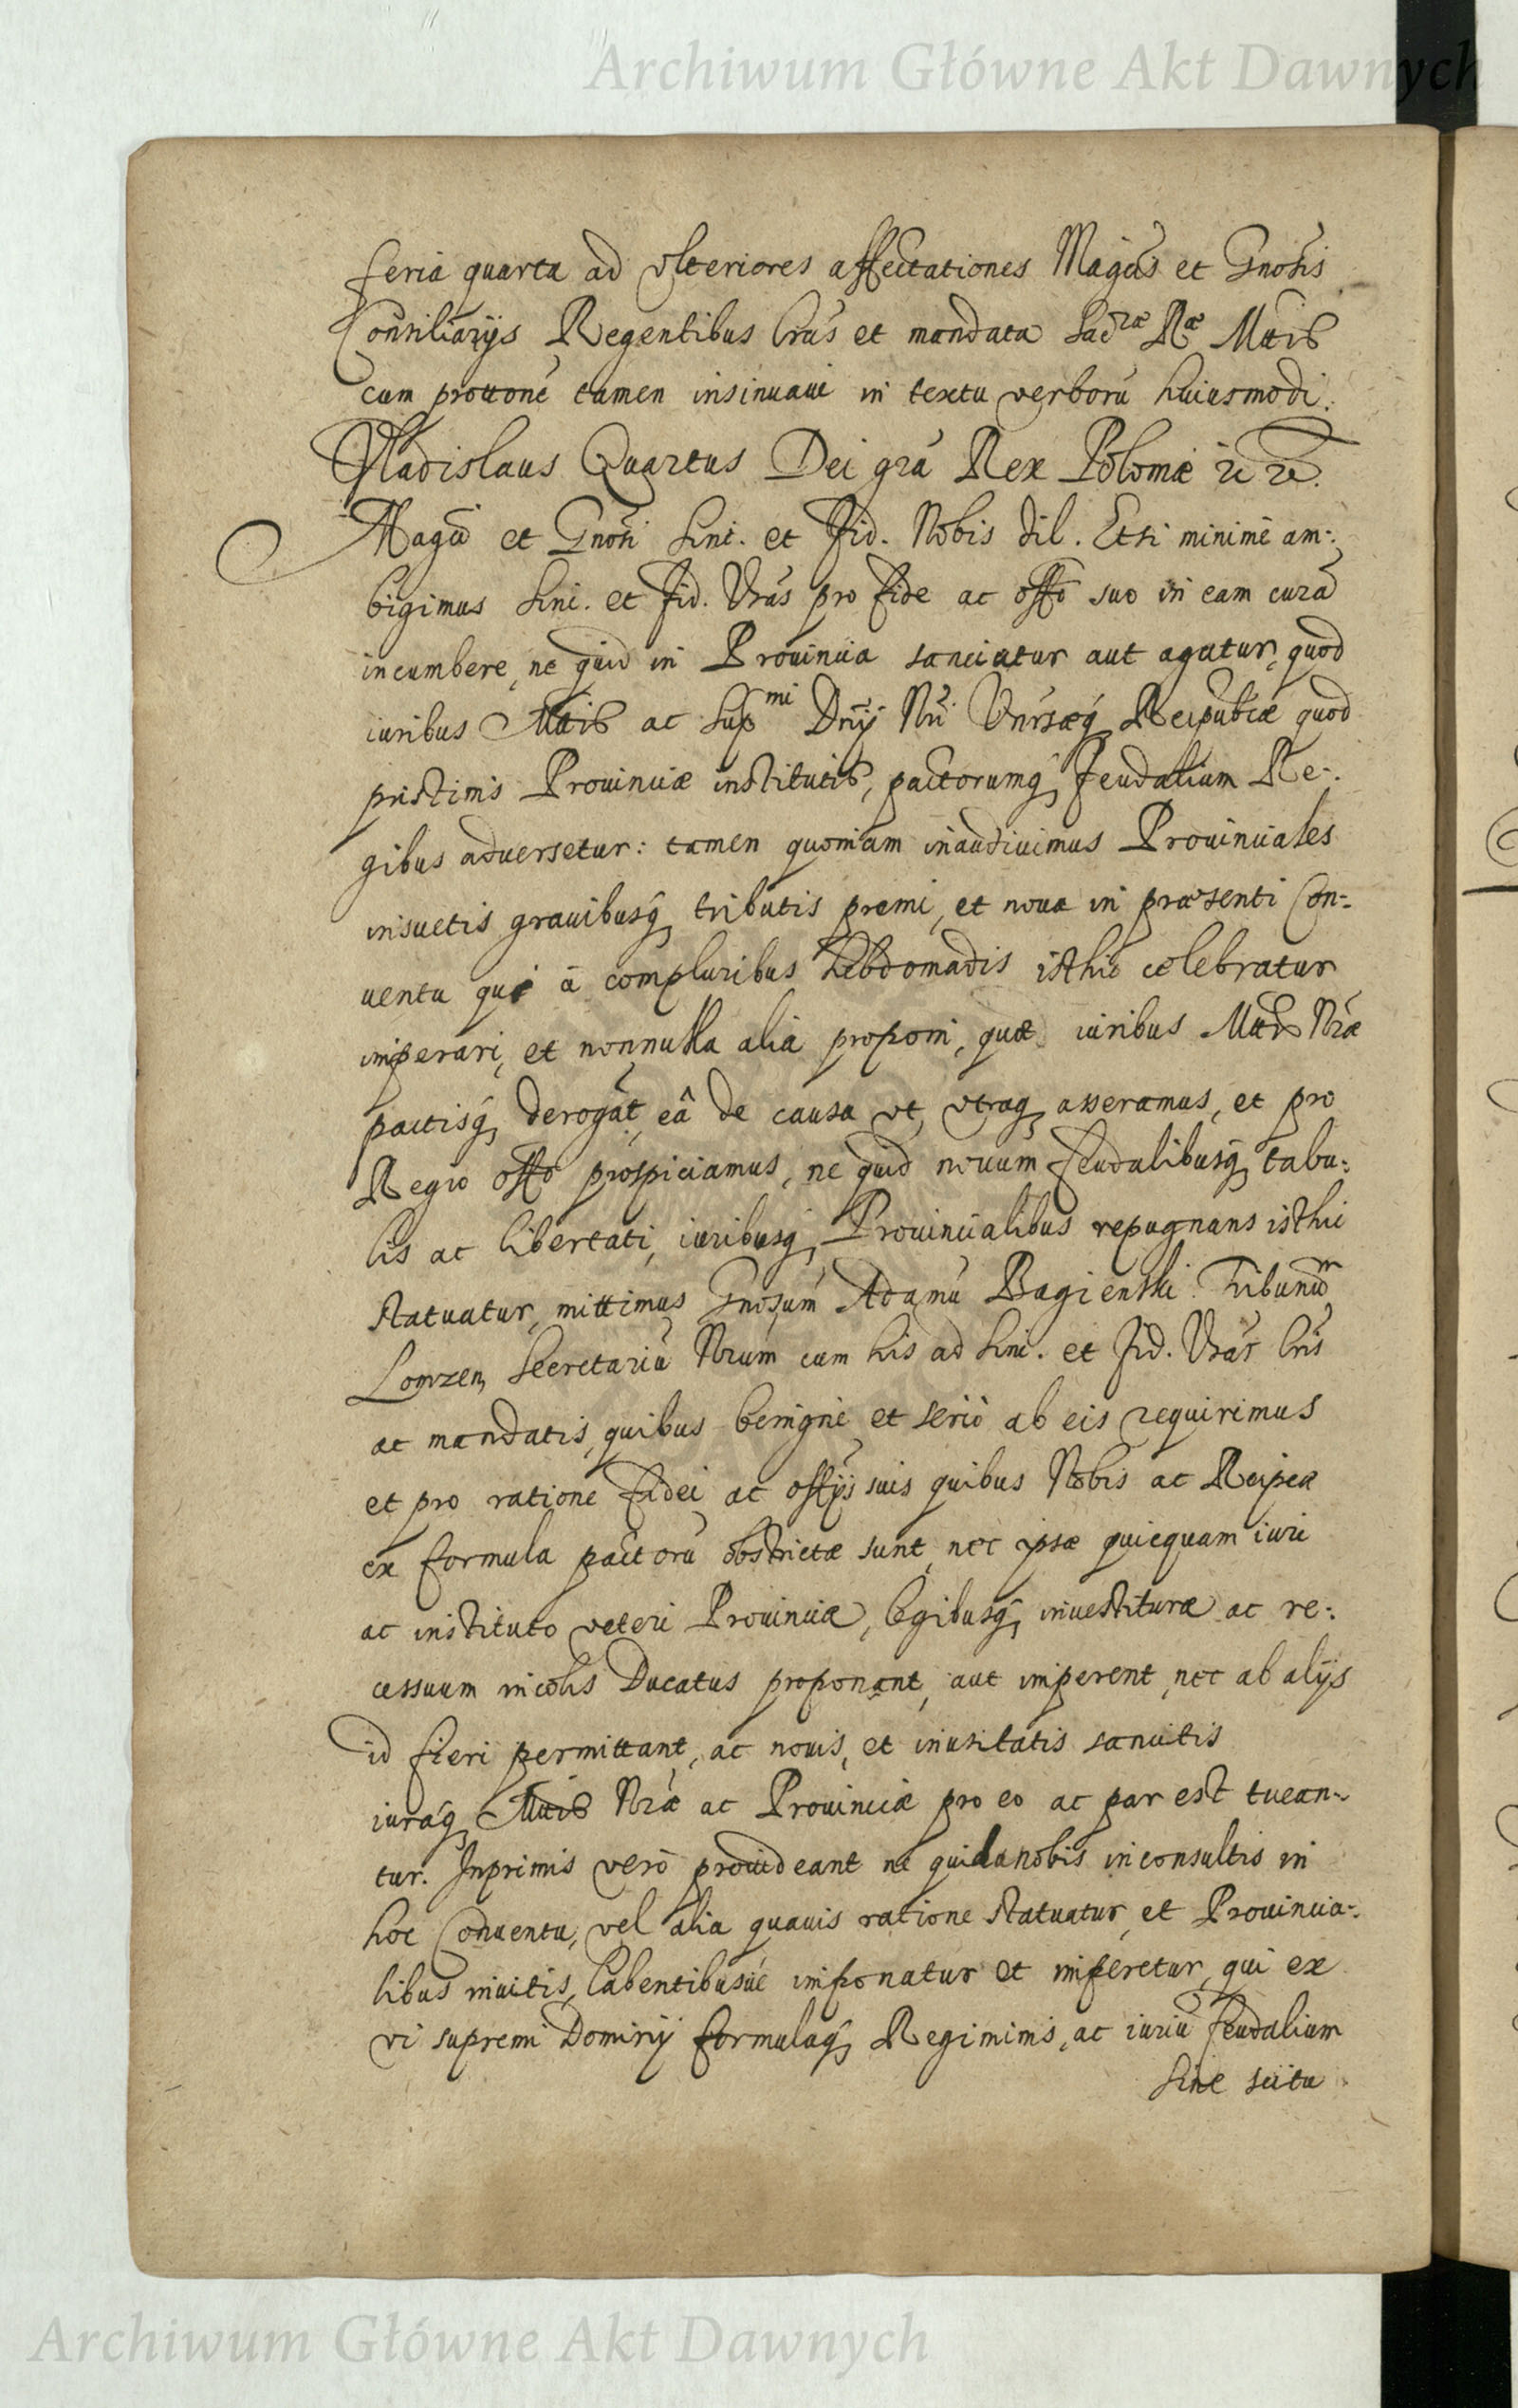 Archiwum Główne Akt Dawnych
feria quarta ad vlteriores affectationes Magcis et Gnosis
Consiliarijs Regentibus Lras et mandata Sacrae Rae Mttis
cum prottone tamen insinuaui in textu verborũ huiusmodi.
Vladislaus Quartus Dei gra Rex Poloniæ zc zc.
Magci et Gnosi Sinc. et Fid. Nobis dil. Etsi minimè am-
bigimus Sinc. et Fid. Vras pro fide ac offo suo in eam curã
incumbere, ne quid in Prouincia sanciatur aut agatur, quod
iuribus Mttis ac Supmi Dnij Nri Vnrsæq Reipublcæ quod
pristinis Prouinciæ institutis, pactorumq feudalium Re-
gibus aduersetur: tamen quoniam inaudiuimus Prouinciales
insuetis grauibusq tributis premi, et noua in præsenti Con-
uentu qui à compluribus hebdomadis isthic celebratur
imperari, et nonnulla alia proponi, quæ iuribus Mttis Nræ
pactisq derogãt, eâ de causa vt vtraq asseramus, et pro
Regio offo prospiciamus, ne quid nouum feudalibusq tabu-
lis ac libertati, iuribusq Prouincialibus repugnans isthic
statuatur, mittimus Gnosum Adamũ Bagienski Tribunum
Lomzen, Secretariũ Nrum cum his ad Sinc. et Fid. Vras Lris
ac mandatis, quibus benignè et seriò ab eis requirimus
et pro ratione fidei ac offijs suis quibus Nobis ac Reipcæ
ex formula pactorũ obstrictæ sunt, nec ipsæ quicquam iuri
ac instituto veteri Prouinciæ, legibusq inuestituræ ac re-
cessuum incolis Ducatus proponant, aut imperent, nec ab alijs
id fieri permittant, ac nouis, et inusitatis sancitis
iuraq Mttis Nræ ac Prouinciæ pro eo ac par est tuean-
tur. Inprimis verò prouideant ne quid a nobis inconsultis in
hoc Conuentu, vel alia quauis ratione statuatur, et Prouincia-
libus inuitis, labentibusue imponatur et imperetur, qui ex
vi supremi Dominij formulaq Regiminis, ac iuriũ feudalium
Sine scitu
Archiwum Główne Akt Dawnych